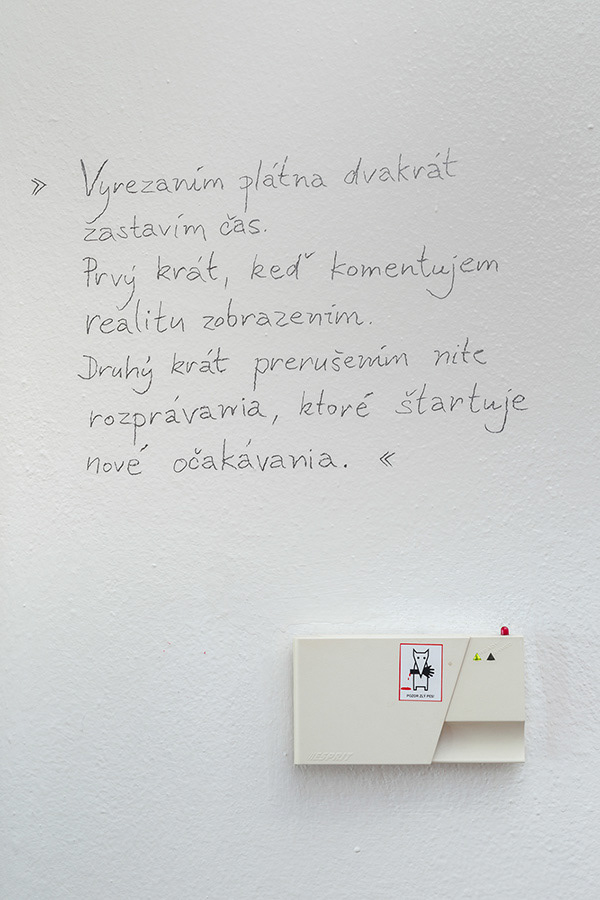 » Vyrezaním plátna dvakrát
zastavím čas.
Prvý krát, keď komentujem
realitu zobrazením.
Druhý krát prerušením nite
rozprávania, ktoré štartuje
nové očakávania. «
POZOR ZLÝ PES!